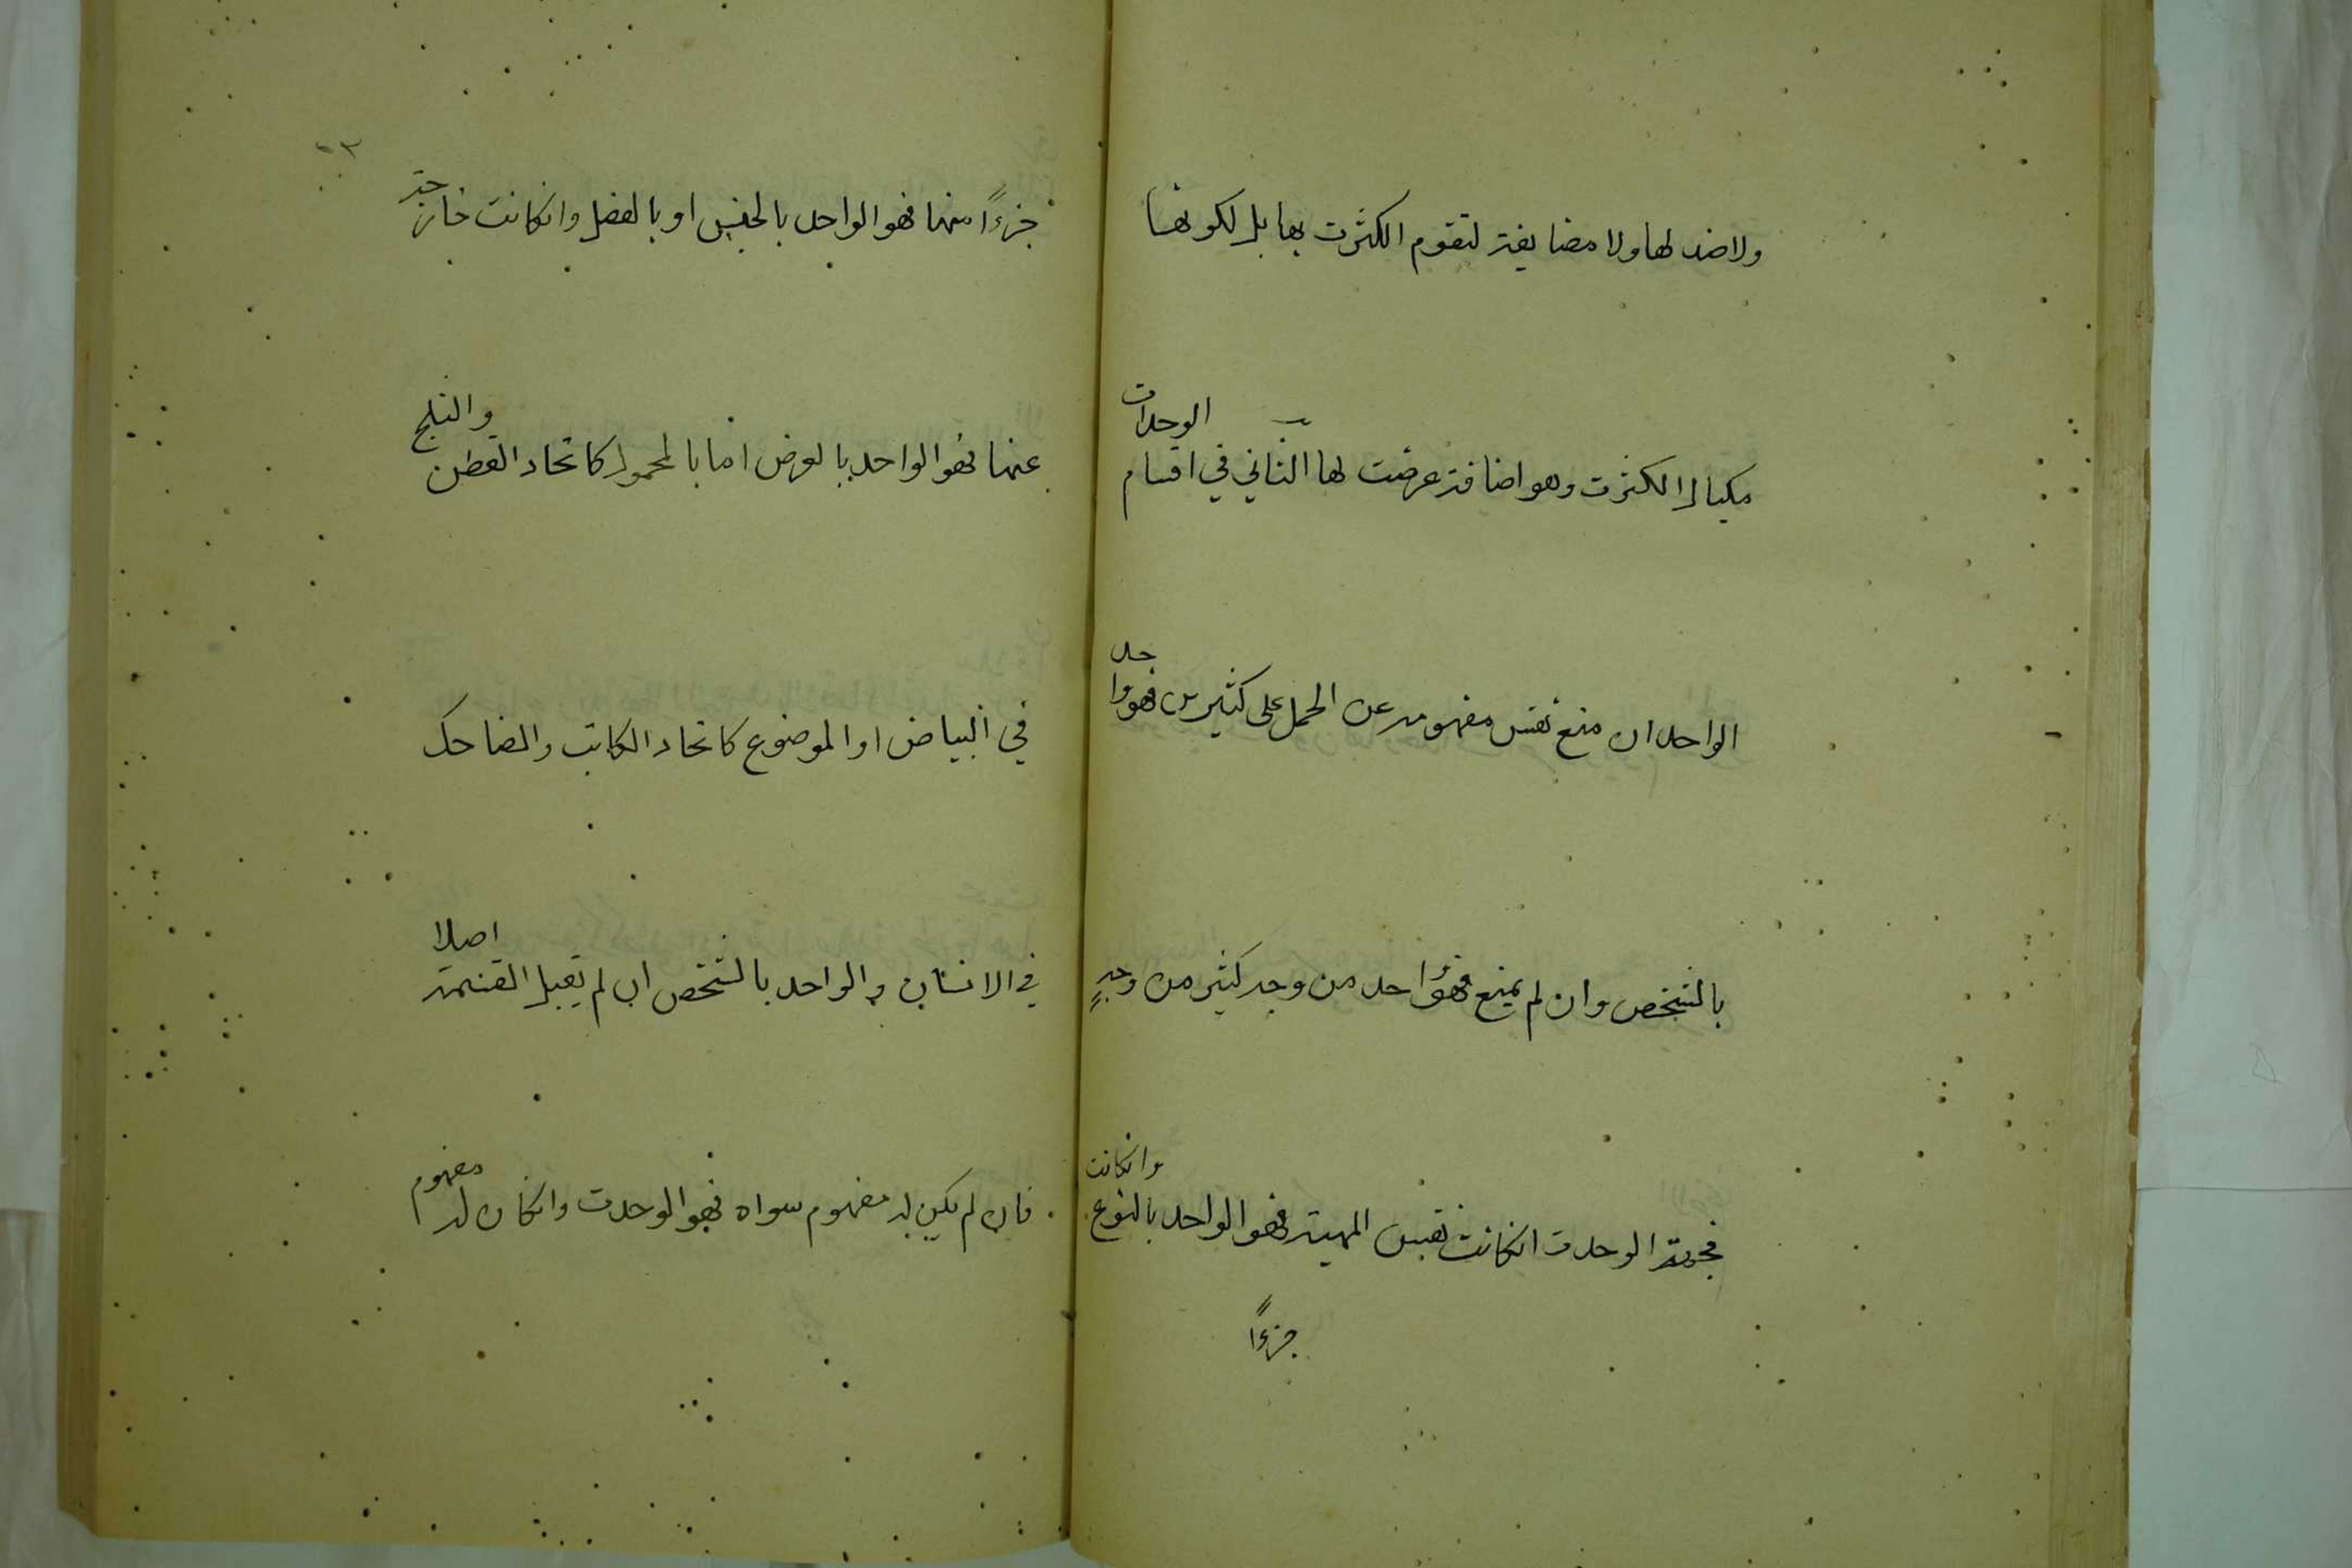 ولا ضد لها ولا مضايفة لتقوم الكثرت بها بل لكونها
مكيال الكثرت وهو اضافة عرضت لها الثاني في اقسام الوحدات
الواحد ان منع نفس مفهومه عن الحمل على كثيرين فهو واحد
بالشخص وان لم يمنع فهو واحد من وجه كثير من وجهٍ
فجهة الوحدت انكانت نفس المهية فهو الواحد بالنوع وانكانت
جزءًا
جزءًا منها فهو الواحد بالجنس او بالفصل وانكانت خارجة
عنها فهو الواحد بالعرض اما بالمحمول كاتحاد القطن والثلج
في البياض او الموضوع كاتحاد الكاتب والضاحك
في الانسان والواحد بالشخص ان لم يقبل القسمة اصلا
فان لم يكن له مفهوم سواه فهو الوحدت وانكان له مفهوم